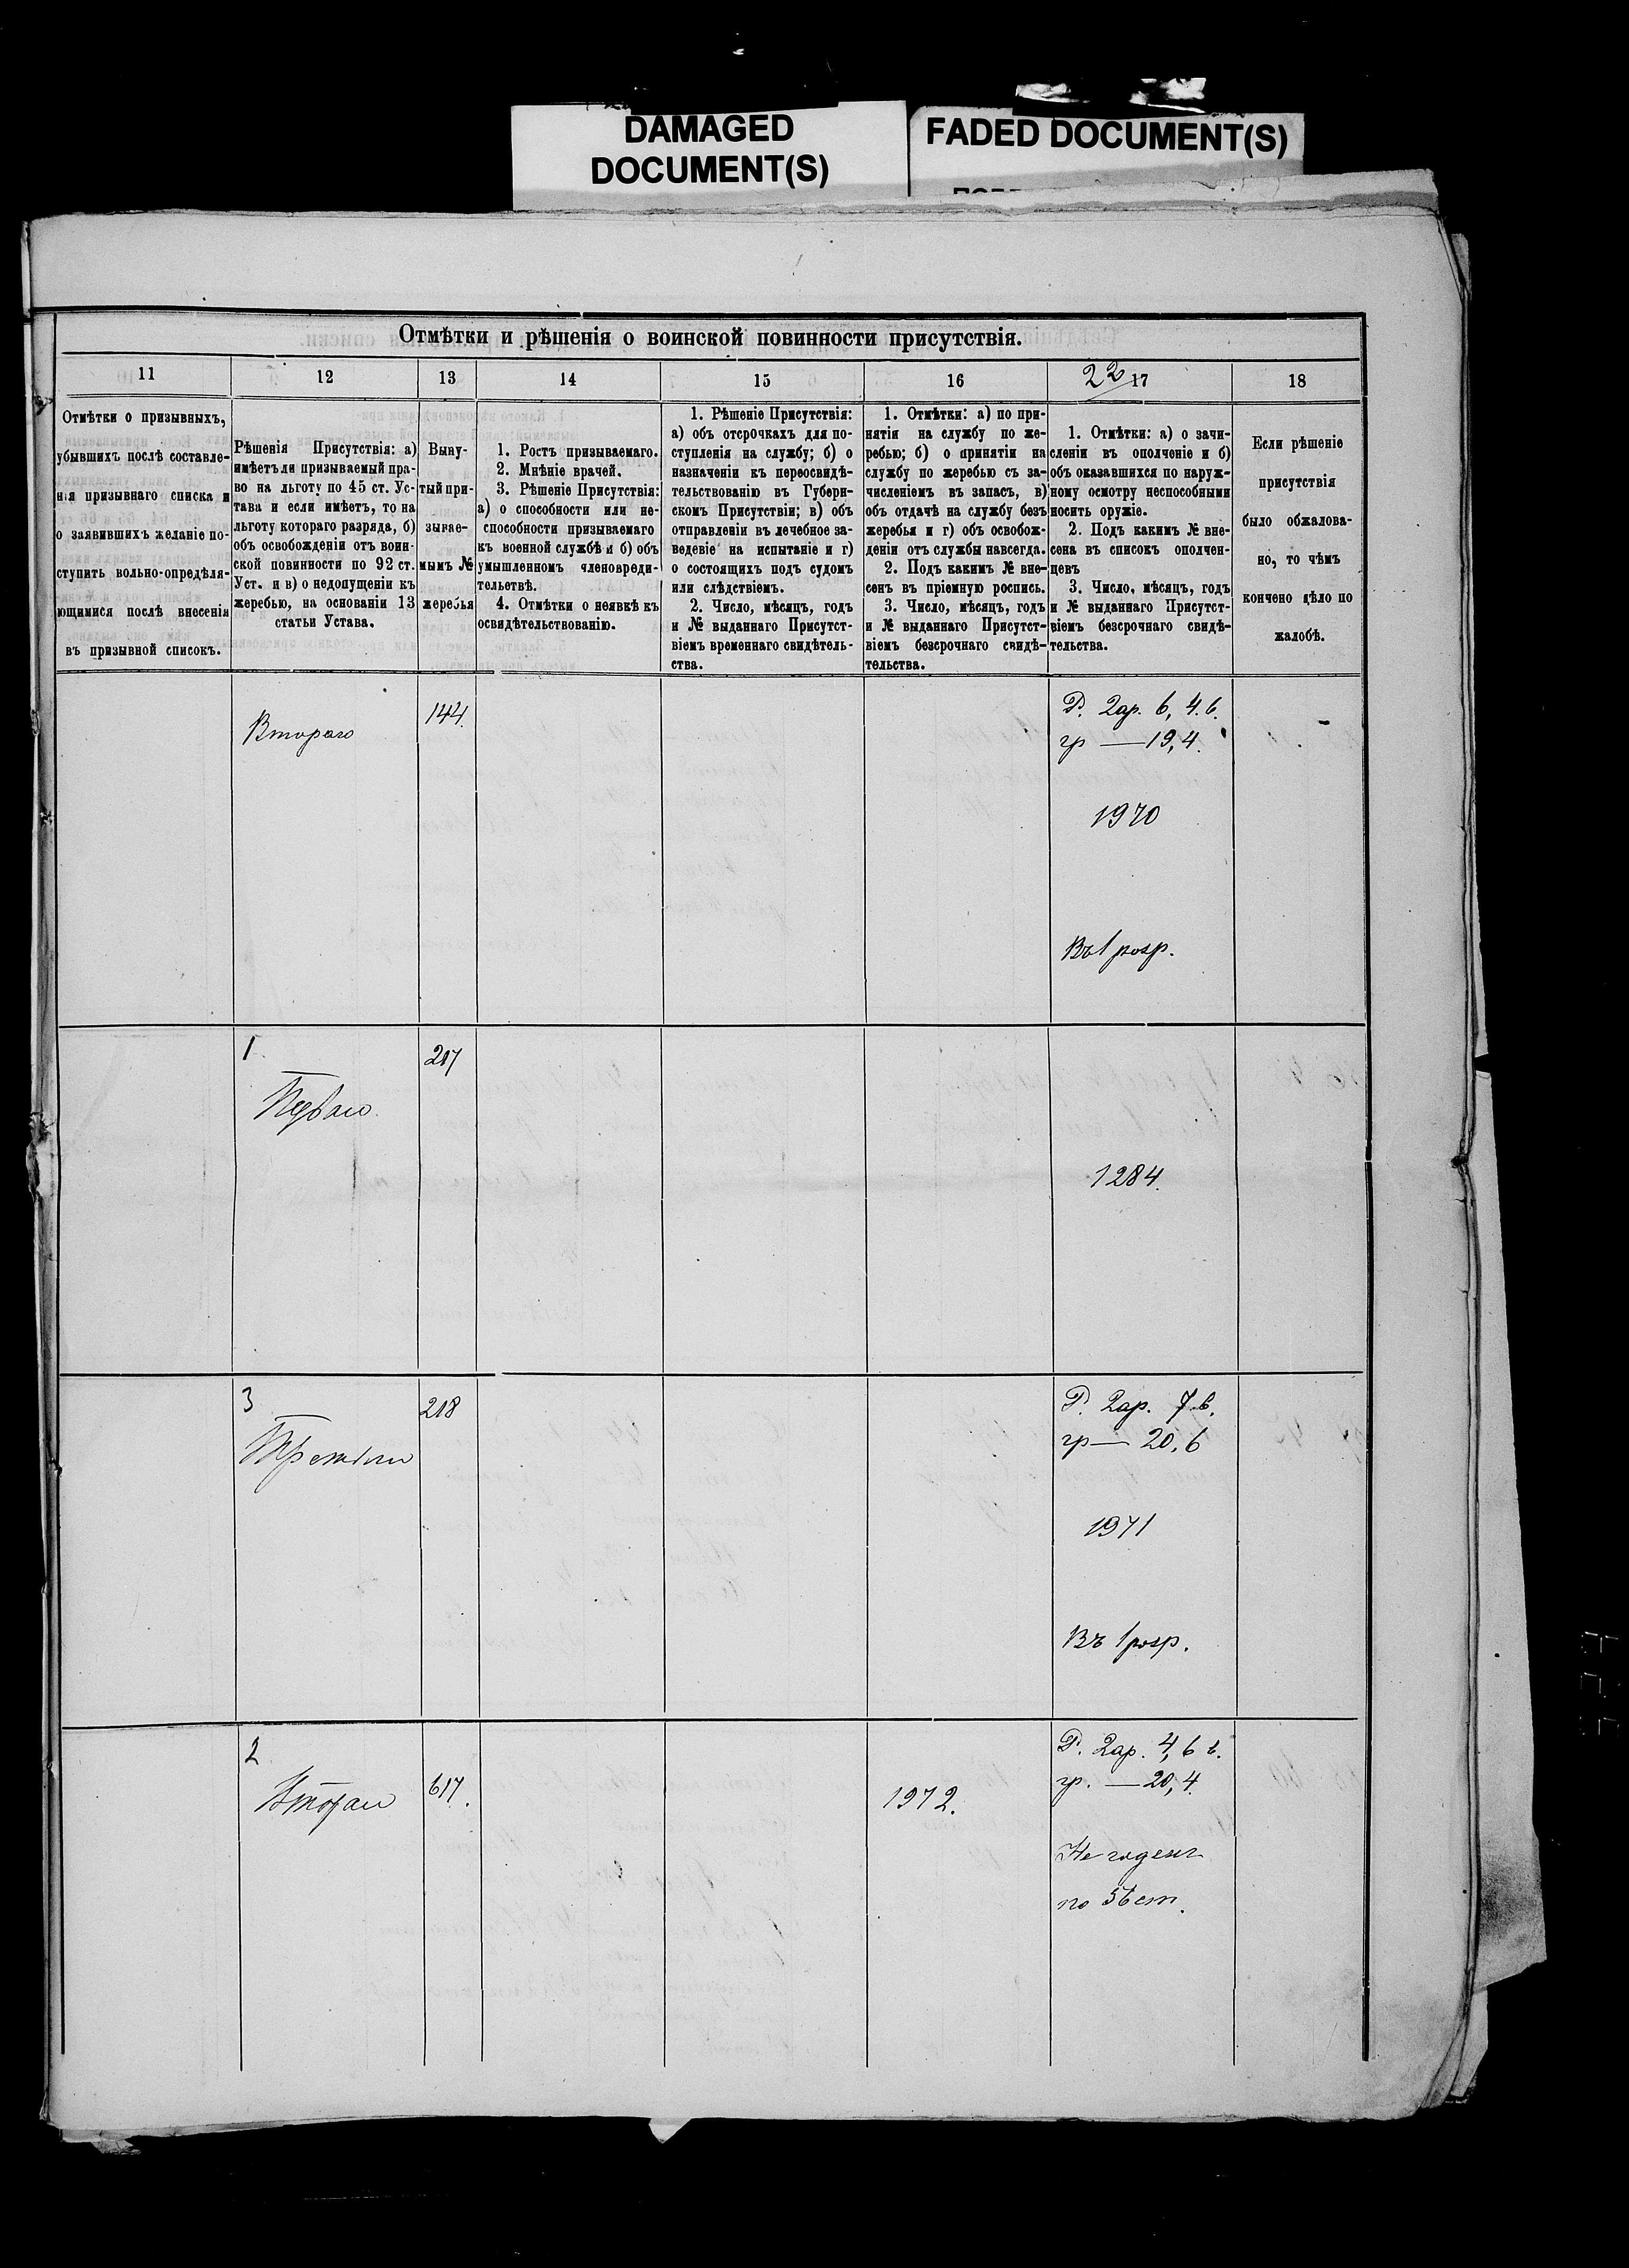 DAMAGED
DOCUMENT(S)
FADED DOCUMENT(S)
Отмѣтки и рѣшенія о воинской повинности присутствія.
11
12
13
14
15
16
22
17
18
Отмѣтки о призывныхъ,
убывшихъ послѣ составле-
нія призывнаго списка и
о заявившихъ желаніе по-
ступить вольно-опредѣля-
ющимися послѣ внесенія
въ призывной списокъ.
Рѣшенія Присутствія: а)
имѣетъ ли призываемый пра-
во на льготу по 45 ст. Ус-
тава и если имѣетъ, то на
льготу котораго разряда, б)
объ освобожденіи отъ воин-
ской повинности по 92 ст.
Уст. и в) о недопущеніи къ
жеребью, на основаніи 13
статьи Устава.
Выну-
тый при-
зывае-
мымъ №
жеребья
1. Ростъ призываемаго.
2. Мнѣніе врачей.
3. Рѣшеніе Присутствія:
а) о способности или не-
способности призываемаго
къ военной службѣ и б) объ
умышленномъ членовреди-
тельствѣ.
4. Отмѣтки о неявкѣ къ
освидѣтельствованію.
1. Рѣшеніе Присутствія:
а) объ отсрочкахъ для по-
ступленія на службу; б) о
назначеніи къ переосвидѣ-
тельствованію въ Губерн-
скомъ Присутствіи; в) объ
отправленіи въ лечебное за-
веденіе на испытаніе и г)
о состоящихъ подъ судомъ
или слѣдствіемъ.
2. Число, мѣсяцъ, годъ
и № выданнаго Присутст-
віемъ временнаго свидѣтель-
ства.
1. Отмѣтки: а) по при-
нятіи на службу по же-
ребью; б) о принятіи на
службу по жеребью съ за-
численіемъ въ запасъ, в)
объ отдачѣ на службу безъ
жеребья и г) объ освобож-
деніи отъ службы навсегда.
2. Подъ какимъ № вне-
сенъ въ пріемную роспись.
3. Число, мѣсяцъ, годъ
и № выданнаго Присутст-
віемъ безсрочнаго свидѣ-
тельства.
1. Отмѣтки: а) о зачи-
сленіи въ ополченіе и б)
объ оказавшихся по наруж-
ному осмотру неспособными
носить оружіе.
2. Подъ какимъ № вне-
сена въ списокъ ополчен-
цевъ
3. Число, мѣсяцъ, годъ
и № выданнаго Присутст-
віемъ безсрочнаго свидѣ-
тельства.
Если рѣшеніе
присутствія
было обжалова-
но, то чѣмъ
кончено дѣло по
жалобѣ.
Втораго
144.
Р. 2ар. 6, 4.в.
гр — 19,4.
1970
Въ 1 розр.
1
Перваго.
217
1284.
3
Третьяго
218
Р. 2ар. 7.в.
гр — 20,6
1971
Въ 1 розр.
2
Втораго
617.
1972.
Р. 2ар. 4, 6 в.
гр. — 20,4.
Не годенъ
по 56 ст.